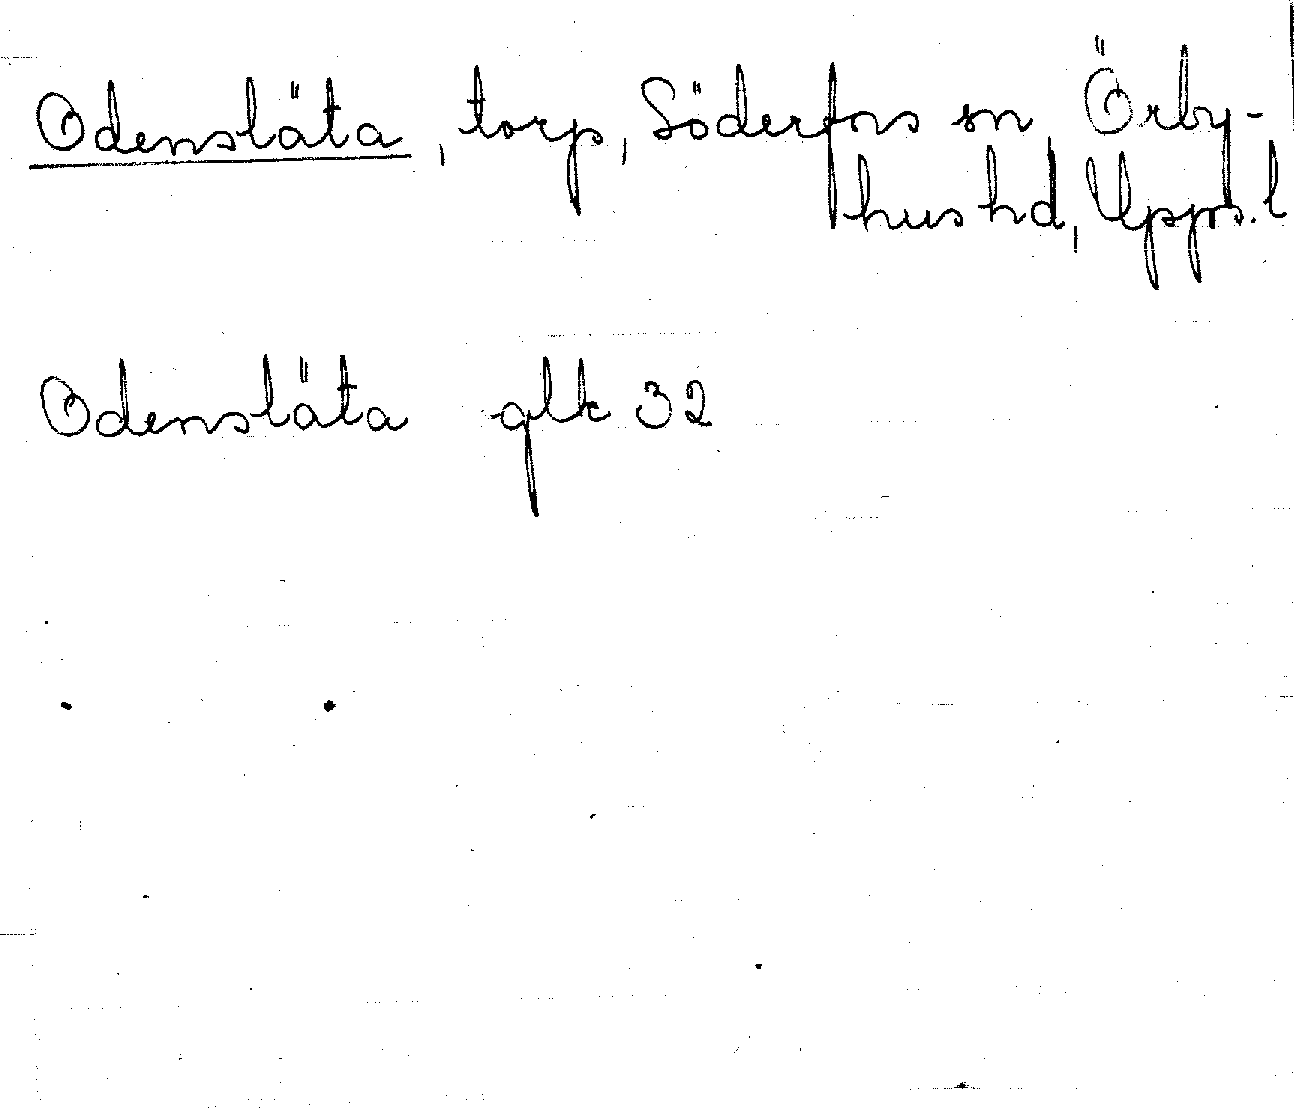 Odensläta, torp, Söderfors sn, Örby-
hus hd, Upps. l
Odensläta glk 32